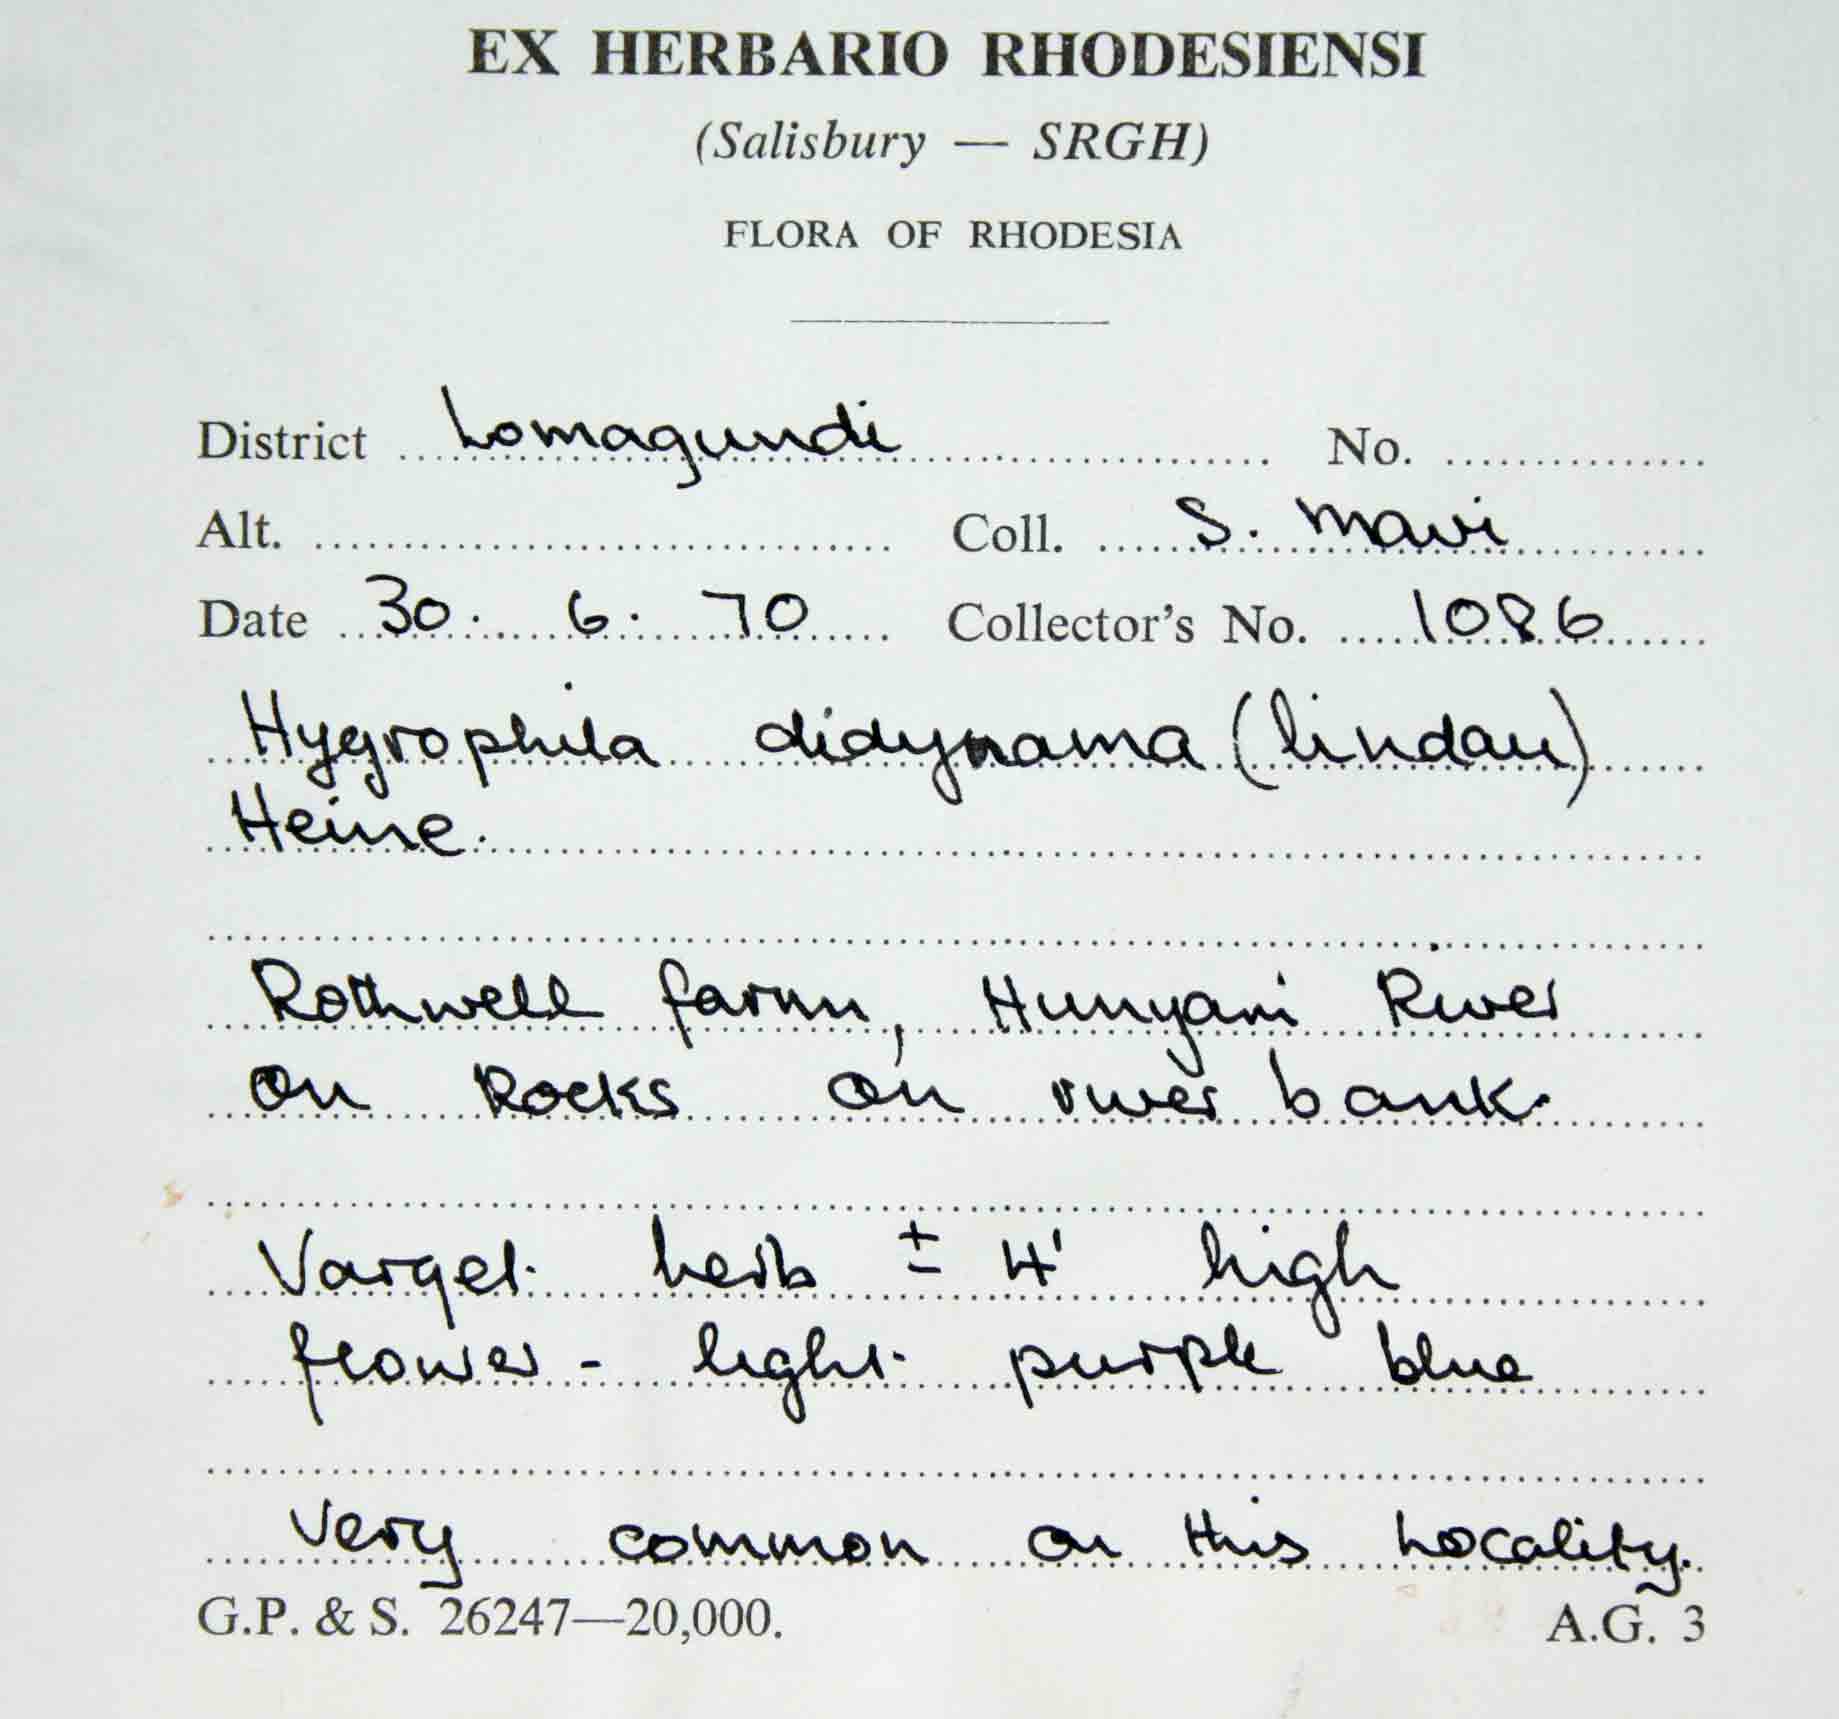 EX HERBARIO RHODESIENSI
(Salisbury — SRGH)
FLORA OF RHODESIA
District Lomagundi No.
Alt. Coll. S. Mavi
Date 30. 6. 70 Collector's No. 1086
Hygrophila didynama (lindau)
Heine.
Rothwell farm, Hunyani River
on Rocks on river bank.
herb ± 4' high
flower - light purple blue
Very common on this Locality.
G.P. & S. 26247—20,000. A.G. 3